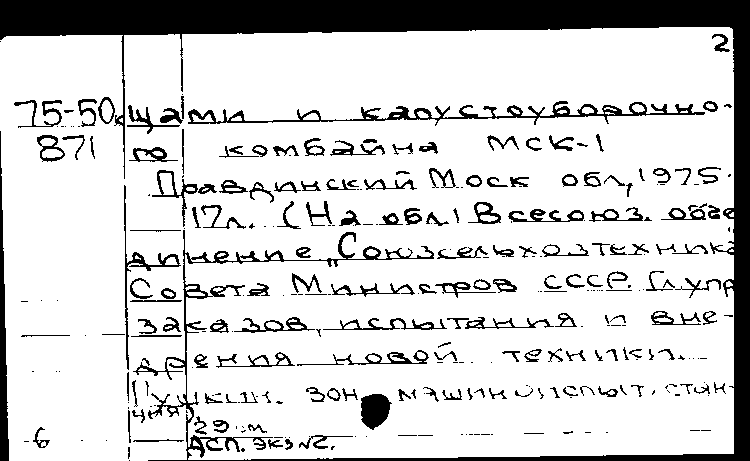 2
75-50к щами и капустоуборочно-
871 го комбайна МСК-1
Правдинский Моск обл, 1975.
17л. (На обл: Всесоюз. объе
динение „Союзсельхозтехника"
Совета Министров СССР. Гл упр
заказов, испытания и вне-
дрения новой техники.
Пушкин. зон. машиноиспыт. стан-
ция).
29 см
6 АСП. экз №2.